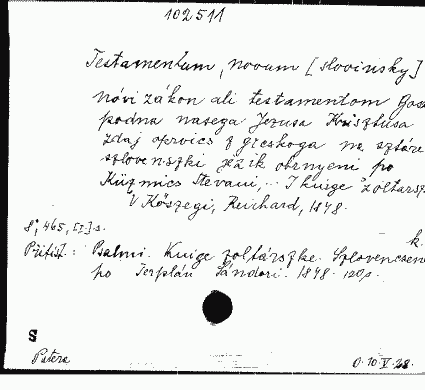 102511
Testamentum, novum [slovinsky]
Nôvi zákon ali testamentom Gos
podna nasega Jezusa Kristusa
zdaj oprvics z grcskoga na sztáro
szlovenszki jezik obrnyeni po
Küzmics Stevani,.. I knige 'zoltarsz
V Kőszegi, Reichard, 1848.
8°, 465, [I] s.
k.
Přítišt.: Psalmi. Knige zoltárszke. Szlovencsene
po Terplán Sándori. 1848. 120 s.
S
Patera
0.10.V.28.